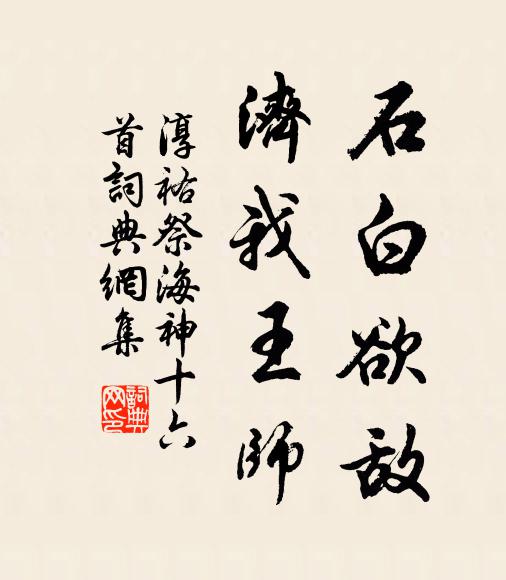 石白欲敌
濟我王師
淳祐祭海神十六
首詞典網集
詞典網印